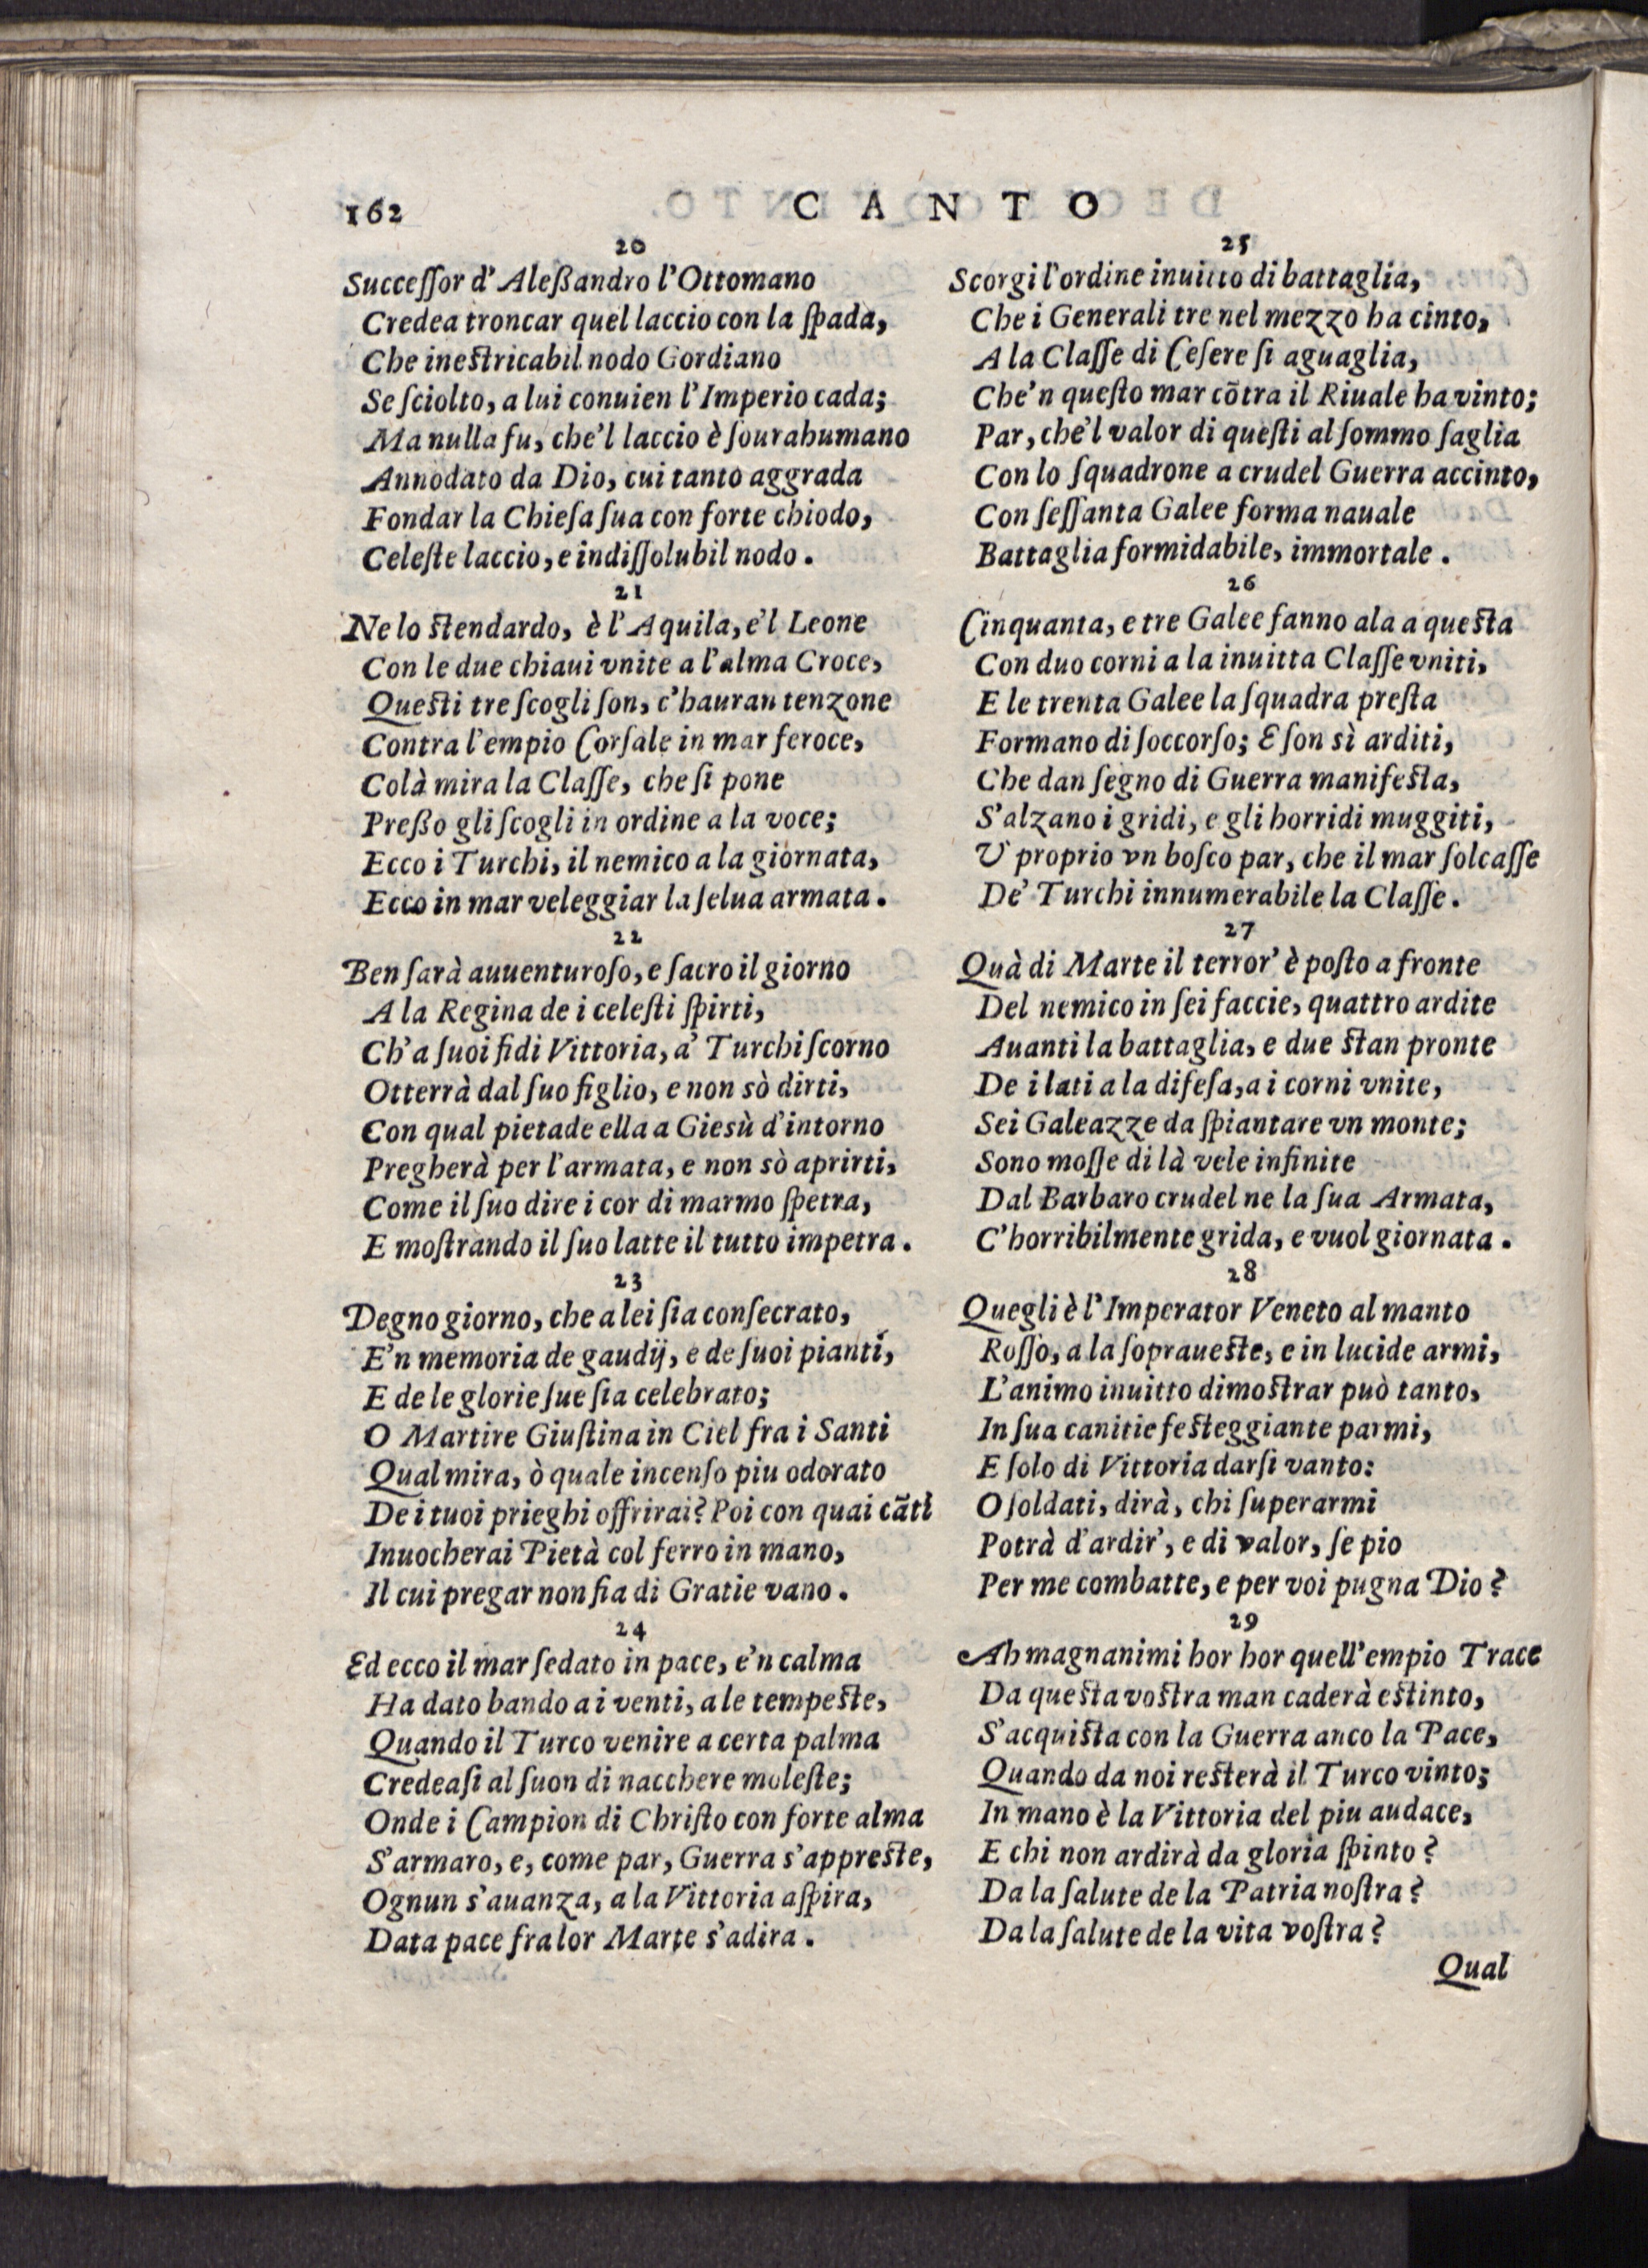 162
CANTO
20
Successor d'Aleßandro l'Ottomano
Credea troncar quel laccio con la spada,
Che inestricabil nodo Gordiano
Se sciolto, a lui conuien l'Imperio cada;
Ma nulla fu, che'l laccio è sourahumano
Annodato da Dio, cui tanto aggrada
Fondar la Chiesa sua con forte chiodo,
Celeste laccio, e indissolubil nodo.
21
Ne lo stendardo, è l'Aquila, e'l Leone
Con le due chiaui vnite a l'alma Croce,
Questi tre scogli son, c'hauran tenzone
Contra l'empio Corsale in mar feroce,
Colà mira la Classe, che si pone
Preßo gli scogli in ordine a la voce;
Ecco i Turchi, il nemico a la giornata,
Ecco in mar veleggiar la selua armata.
22
Ben sarà auuenturoso, e sacro il giorno
A la Regina de i celesti spirti,
Ch'a suoi fidi Vittoria, a' Turchi scorno
Otterrà dal suo figlio, e non sò dirti,
Con qual pietade ella a Giesù d'intorno
Pregherà per l'armata, e non sò aprirti,
Come il suo dire i cor di marmo spetra,
E mostrando il suo latte il tutto impetra.
23
Degno giorno, che a lei sia consecrato,
E'n memoria de gaudij, e de suoi pianti,
E de le glorie sue sia celebrato;
O Martire Giustina in Ciel fra i Santi
Qual mira, ò quale incenso piu odorato
De i tuoi prieghi offrirai? Poi con quai cãti
Inuocherai Pietà col ferro in mano,
Il cui pregar non fia di Gratie vano.
24
Ed ecco il mar sedato in pace, e'n calma
Ha dato bando a i venti, a le tempeste,
Quando il Turco venire a certa palma
Credeasi al suon di nacchere moleste;
Onde i Campion di Christo con forte alma
S'armaro, e, come par, Guerra s'appreste,
Ognun s'auanza, a la Vittoria aspira,
Data pace fra lor Marte s'adira.
25
Scorgi l'ordine inuitto di battaglia,
Che i Generali tre nel mezzo ha cinto,
A la Classe di Cesere si aguaglia,
Che'n questo mar cõtra il Riuale ha vinto;
Par, che'l valor di questi al sommo saglia
Con lo squadrone a crudel Guerra accinto,
Con sessanta Galee forma nauale
Battaglia formidabile, immortale.
26
Cinquanta, e tre Galee fanno ala a questa
Con duo corni a la inuitta Classe vniti,
E le trenta Galee la squadra presta
Formano di soccorso; E son sì arditi,
Che dan segno di Guerra manifesta,
S'alzano i gridi, e gli horridi muggiti,
V' proprio vn bosco par, che il mar solcasse
De' Turchi innumerabile la Classe.
27
Quà di Marte il terror' è posto a fronte
Del nemico in sei faccie, quattro ardite
Auanti la battaglia, e due stan pronte
De i lati a la difesa, a i corni vnite,
Sei Galeazze da spiantare vn monte;
Sono mosse di là vele infinite
Dal Barbaro crudel ne la sua Armata,
C'horribilmente grida, e vuol giornata.
28
Quegli è l'Imperator Veneto al manto
Rosso, a la sopraueste, e in lucide armi,
L'animo inuitto dimostrar può tanto,
In sua canitie festeggiante parmi,
E solo di Vittoria darsi vanto:
O soldati, dirà, chi superarmi
Potrà d'ardir', e di valor, se pio
Per me combatte, e per voi pugna Dio?
29
Ah magnanimi hor hor quell'empio Trace
Da questa vostra man caderà estinto,
S'acquista con la Guerra anco la Pace,
Quando da noi resterà il Turco vinto;
In mano è la Vittoria del piu audace,
E chi non ardirà da gloria spinto?
Da la salute de la Patria nostra?
Da la salute de la vita vostra?
Qual